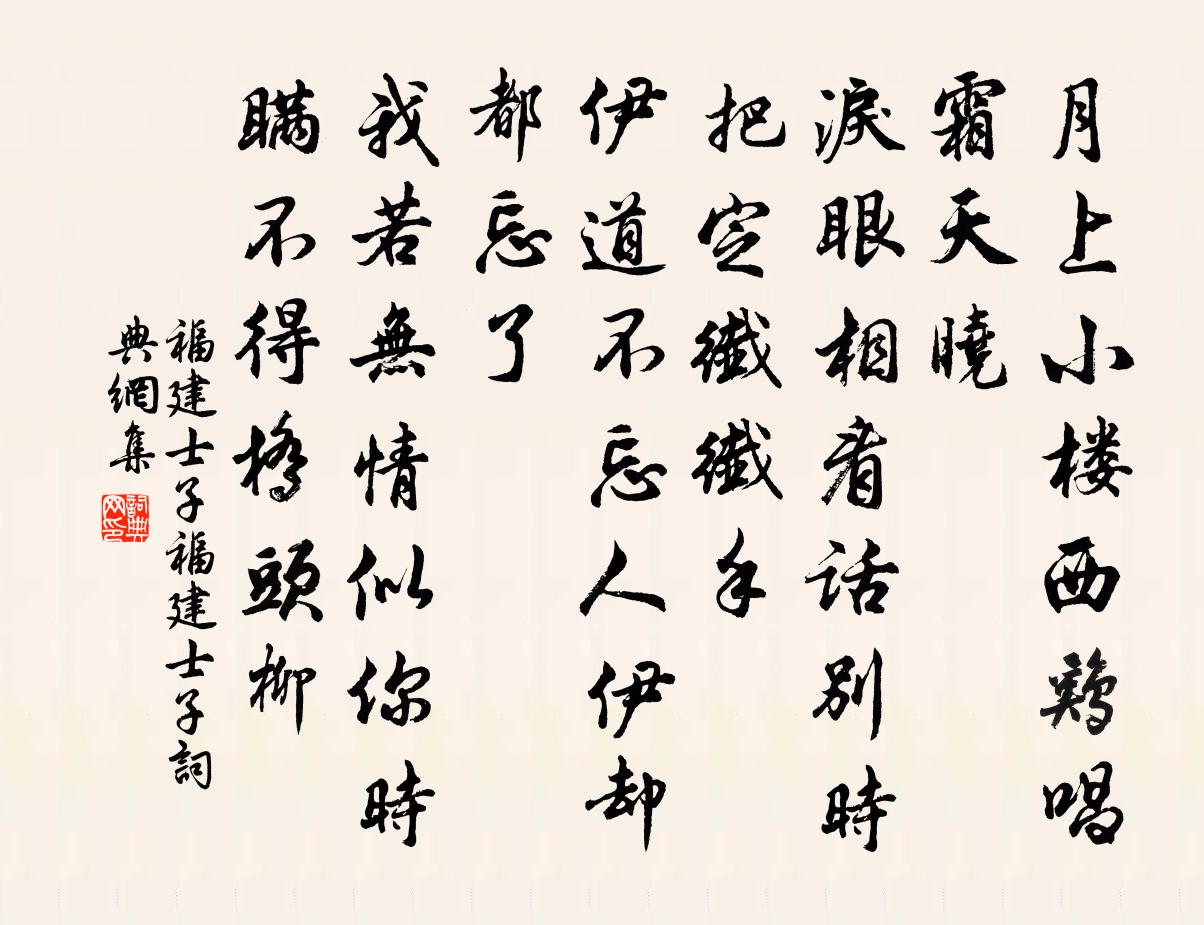 月上小楼西鷄唱
霜天曉
淚眼相看話別時
把定纖纖手
伊道不忘人伊却
都忘了
我若無情似你時
瞞不得橋頭柳
福建士子福建士子詞
典網集
詞典網印